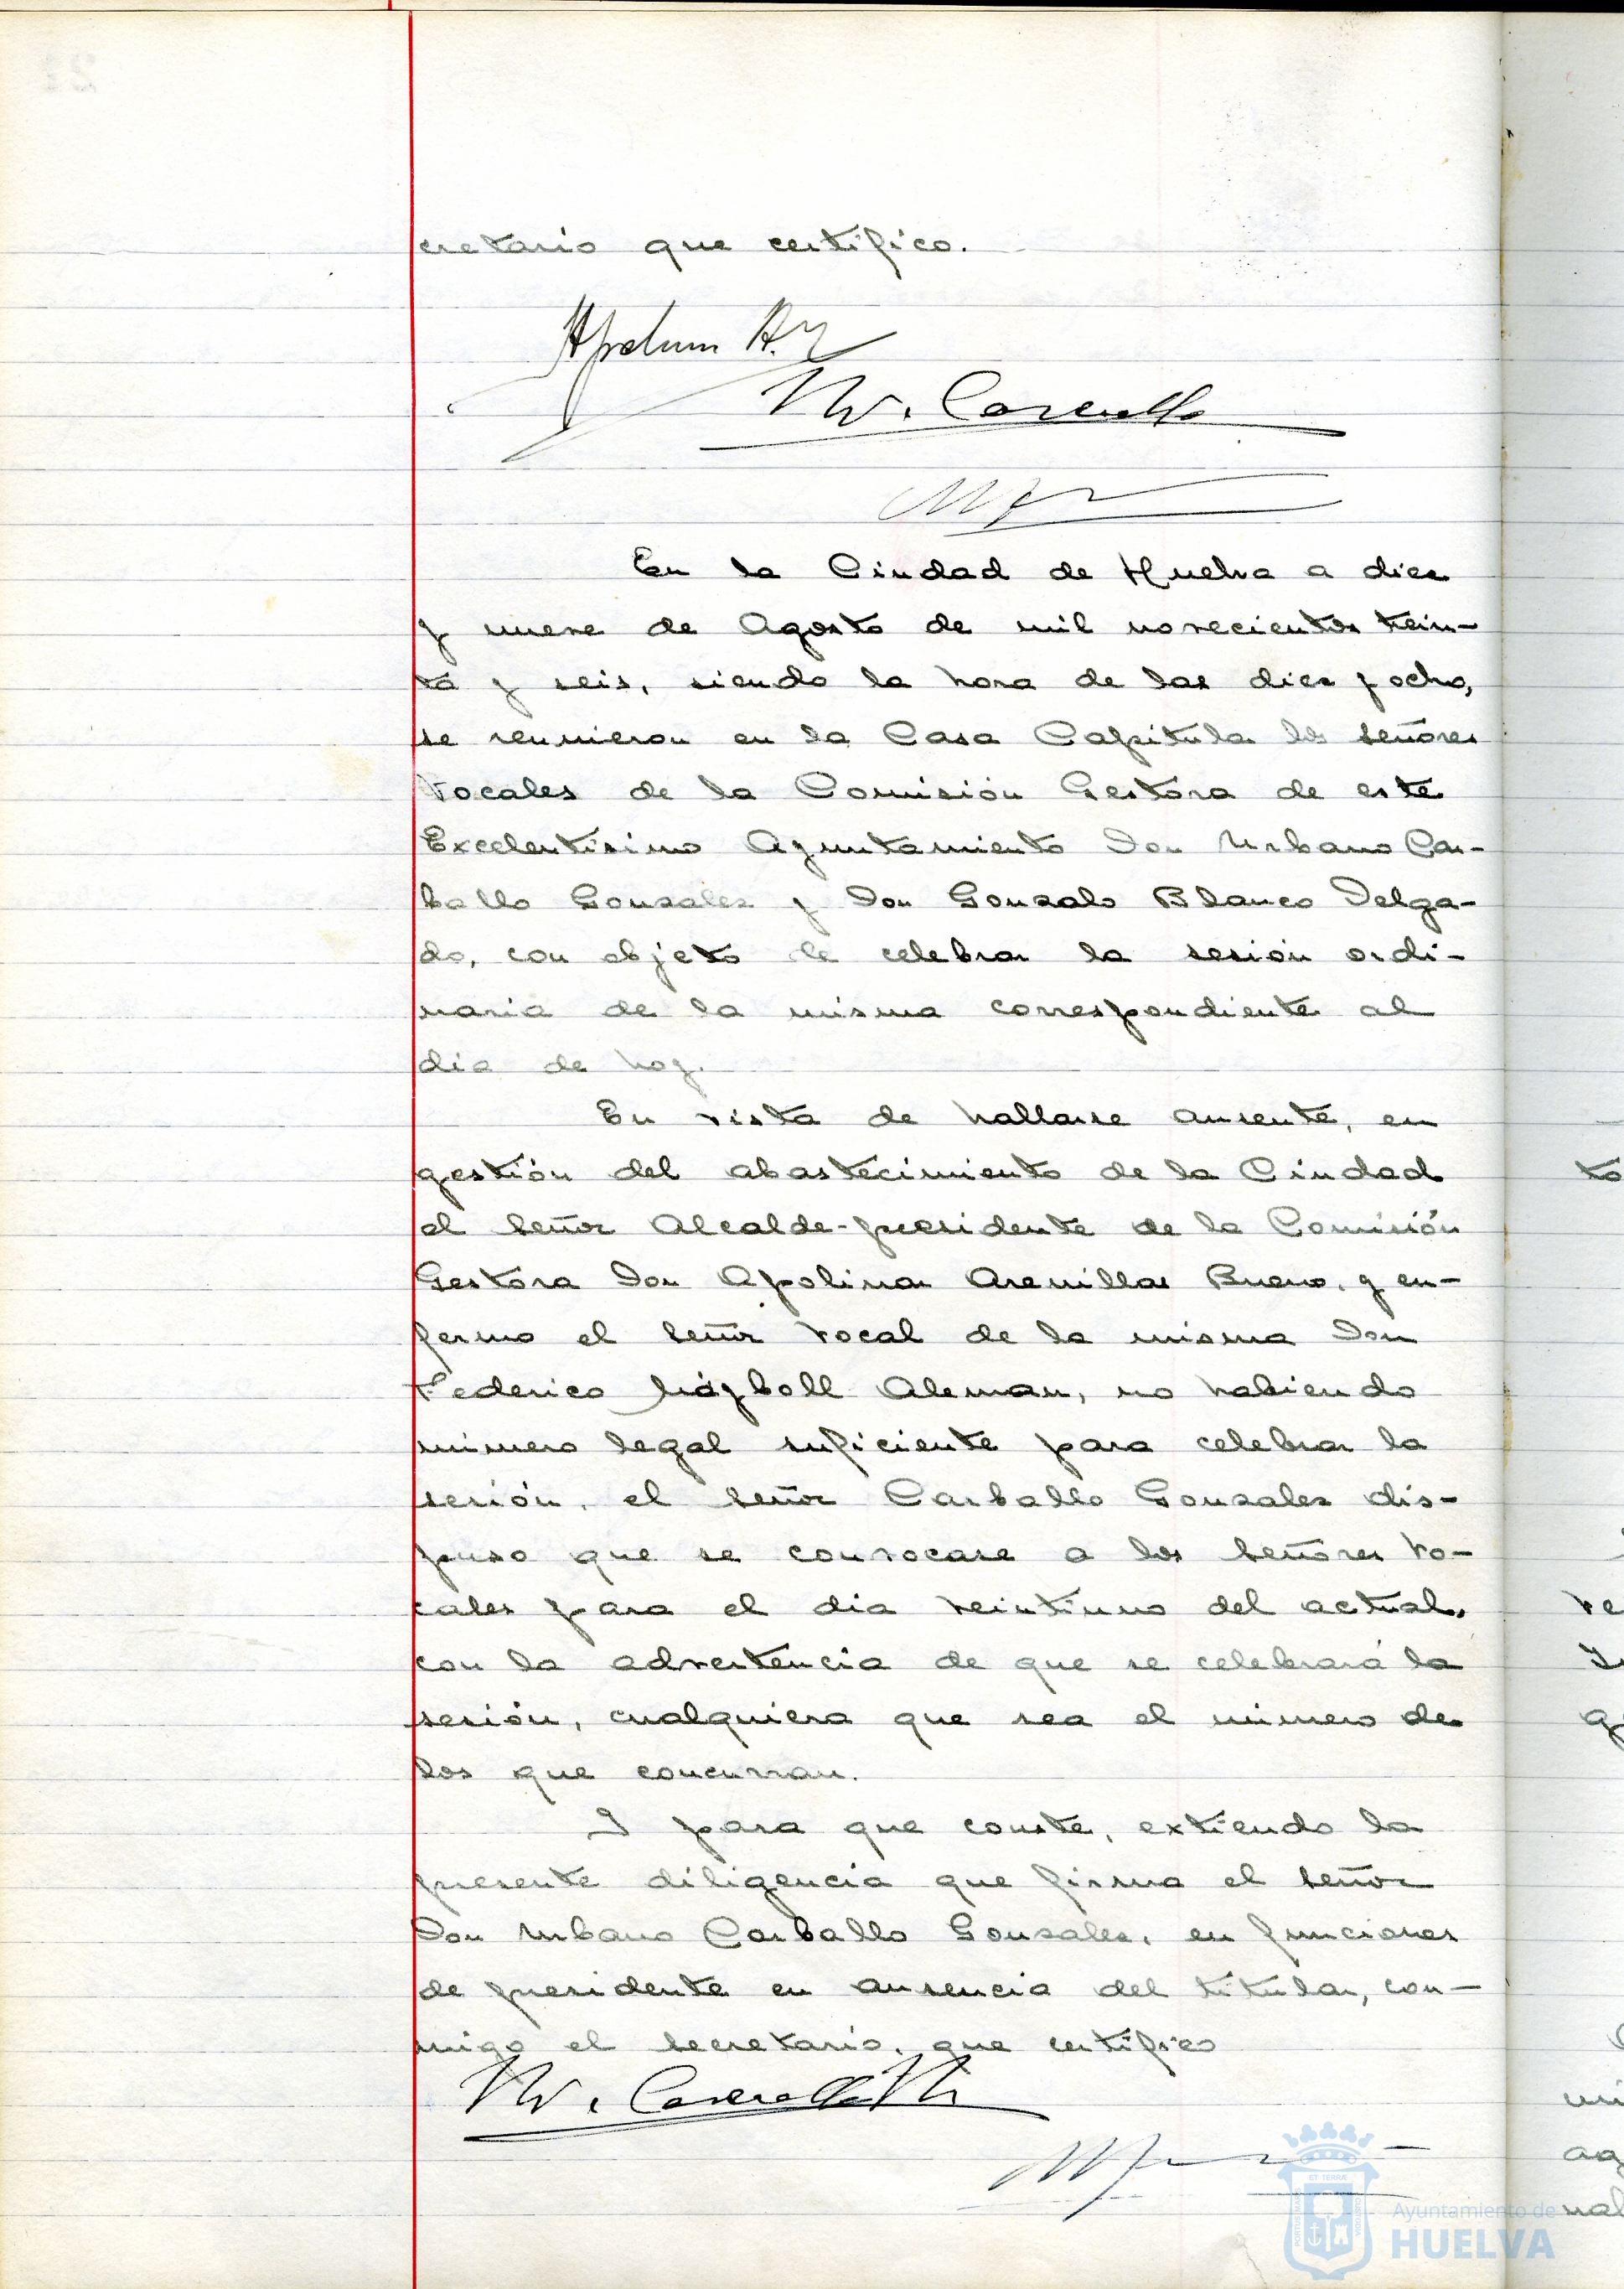 cretario que certifico.
U. Carballo
En la Ciudad de Huelva a diez
y nueve de Agosto de mil novecientos trein-
ta y seis, siendo la hora de las diez y ocho,
se reunieron en la Casa Capitular los señores
Vocales de la Comisión Gestora de este
Excelentísimo Ayuntamiento Don Urbano Car-
ballo Gonzalez y Don Gonzalo Blanco Delga-
do, con objeto de celebrar la sesión ordi-
naria de la misma correspondiente al
dia de hoy.
En vista de hallarse ausente, en
gestión del abastecimiento de la Ciudad
el señor Alcalde-presidente de la Comisión
Gestora Don Apolinar Arenillas Bueno, y en-
fermo el señor Vocal de la misma Don
Federico Aleman, no habiendo
número legal suficiente para celebrar la
sesión, el señor Carballo Gonzalez dis-
puso que se convocase a los señores Vo-
cales para el dia veintiuno del actual,
con la advertencia de que se celebrará la
sesión, cualquiera que sea el número de
los que concurran.
Y para que conste, extiendo la
presente diligencia que firma el señor
Don Urbano Carballo Gonzalez, en funciones
de presidente en ausencia del titular, con-
migo el secretario, que certifico
U. Carballo
Ayuntamiento de
HUELVA